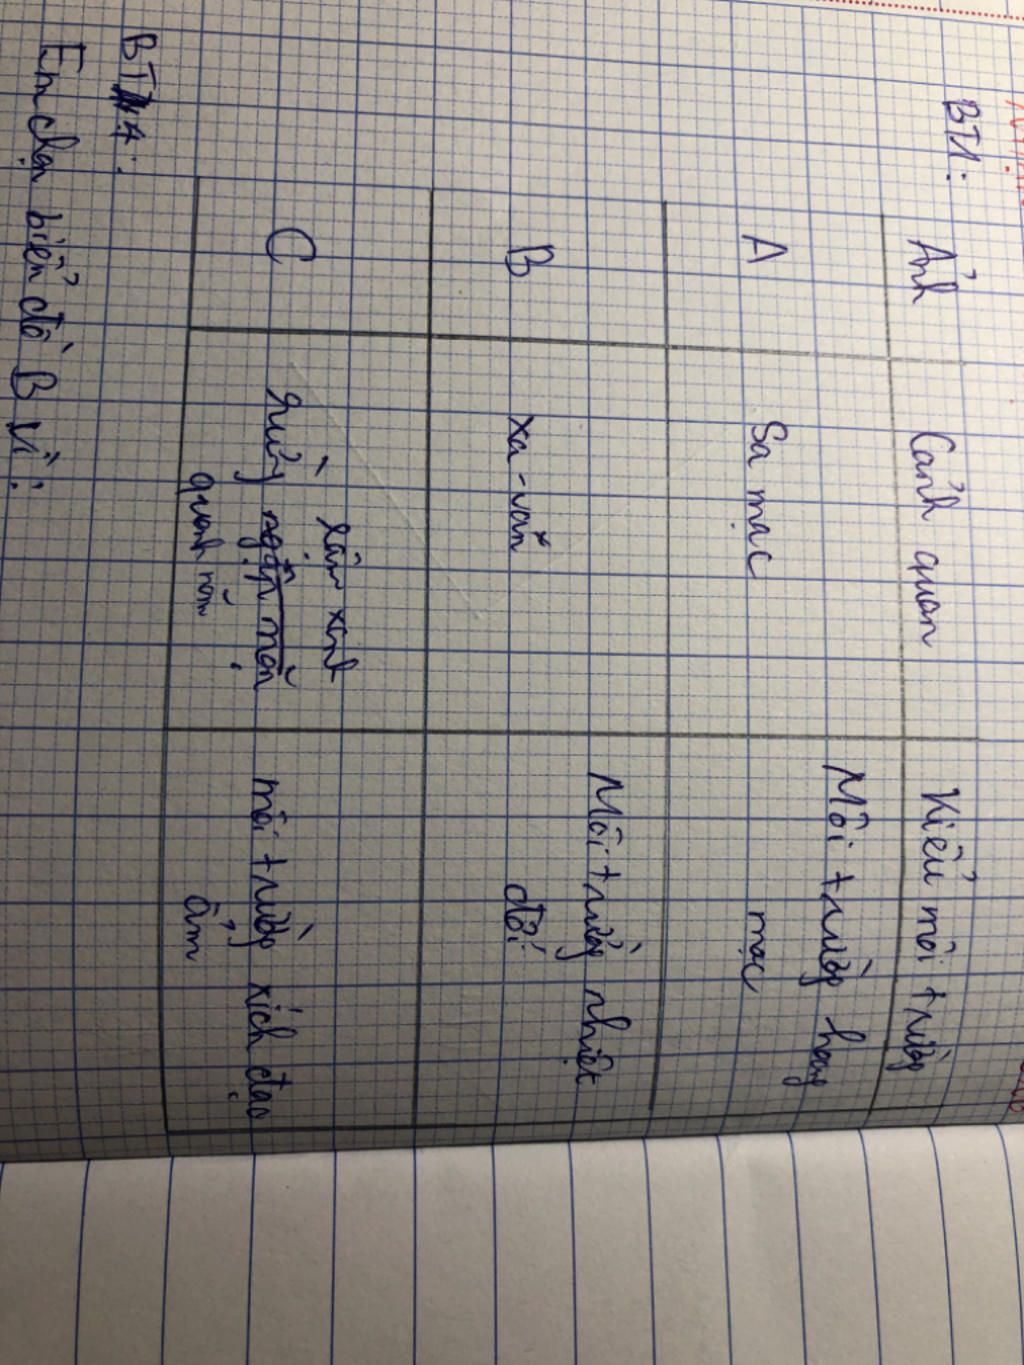 BT1:
Ảnh Cảnh quan Kiểu môi trường
A Sa mạc Môi trường hoang
mạc
B xa-van Môi trường nhiệt
đới
rậm xanh
C Rừng ngập mặn môi trường xích đạo
quanh năm ẩm
BT4:
Em chọn biểu đồ B vì: